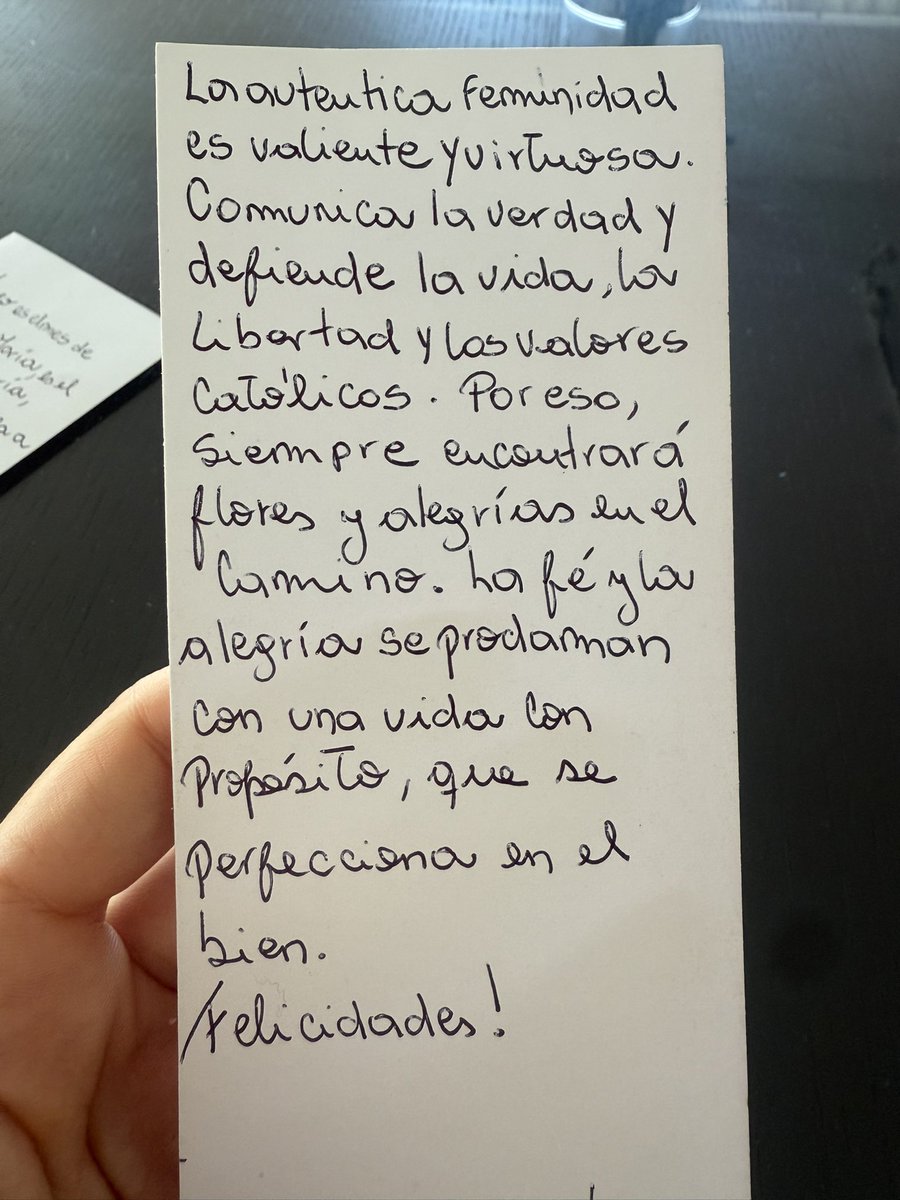 La autentica Feminidad
es valiente y virtuosa.
Comunica la verdad y
defiende la vida, la
Libertad y los valores
Católicos. Por eso,
siempre encontrará
flores y alegrías en el
Camino. La fé y la
alegría se proclaman
con una vida con
Propósito, que se
perfecciona en el
bien.
¡Felicidades!
es el mes de
María es el